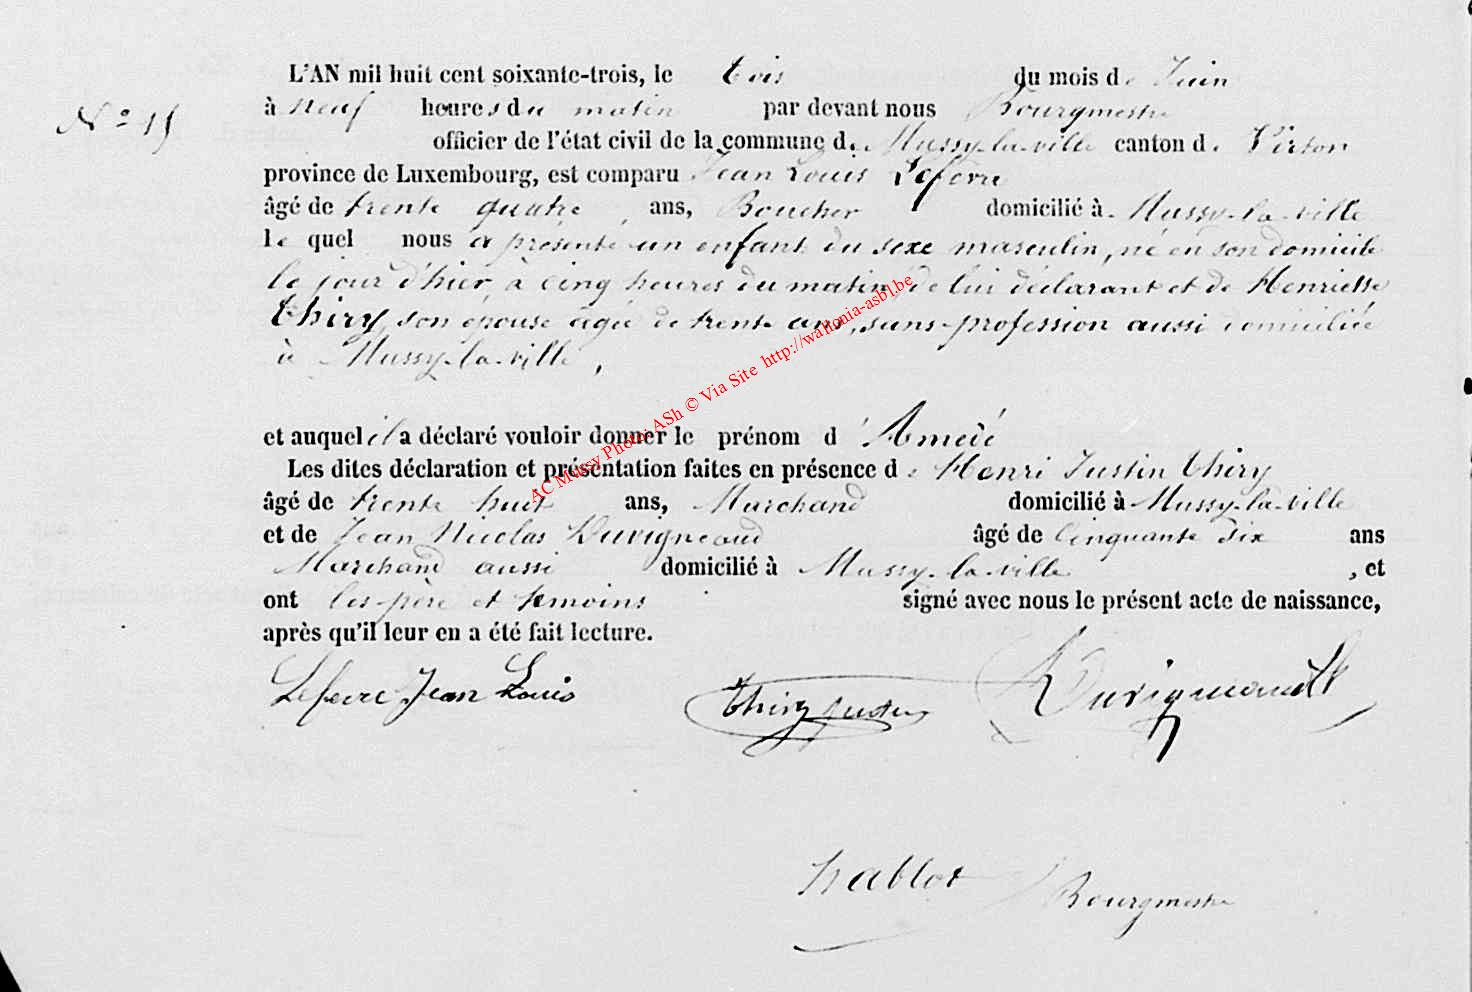 L'AN mil huit cent soixante-trois, le trois du mois de Juin
N° 15
à neuf heures du matin par devant nous Bourgmestre
officier de l'état civil de la commune de Mussy-la-ville canton de Virton
province de Luxembourg, est comparu Jean Louis Lefevre
âgé de trente quatre ans, Boucher domicilié à Mussy-la-ville
le quel nous a présenté un enfant du sexe masculin, né en son domicile
le jour d'hier, à cinq heures du matin, de lui déclarant et de Henriette
Thiry, son épouse âgée de trente ans, sans profession aussi domiciliée
à Mussy-la-ville,
et auquel il a déclaré vouloir donner le prénom d'Amedé
Les dites déclaration et présentation faites en présence de Henri Justin Thiry
âgé de trente huit ans, Marchand domicilié à Mussy-la-ville
et de Jean Nicolas Duvigneaud âgé de Cinquante Six ans
Marchand aussi domicilié à Mussy-la-ville, et
ont les père et témoins signé avec nous le présent acte de naissance,
après qu'il leur en a été fait lecture.
Lefevre Jean Louis Thiry Justin Duvigneault
hablot Bourgmestre
AC Mussy Photo: ASh © Via Site http://wallonia-asbl.be